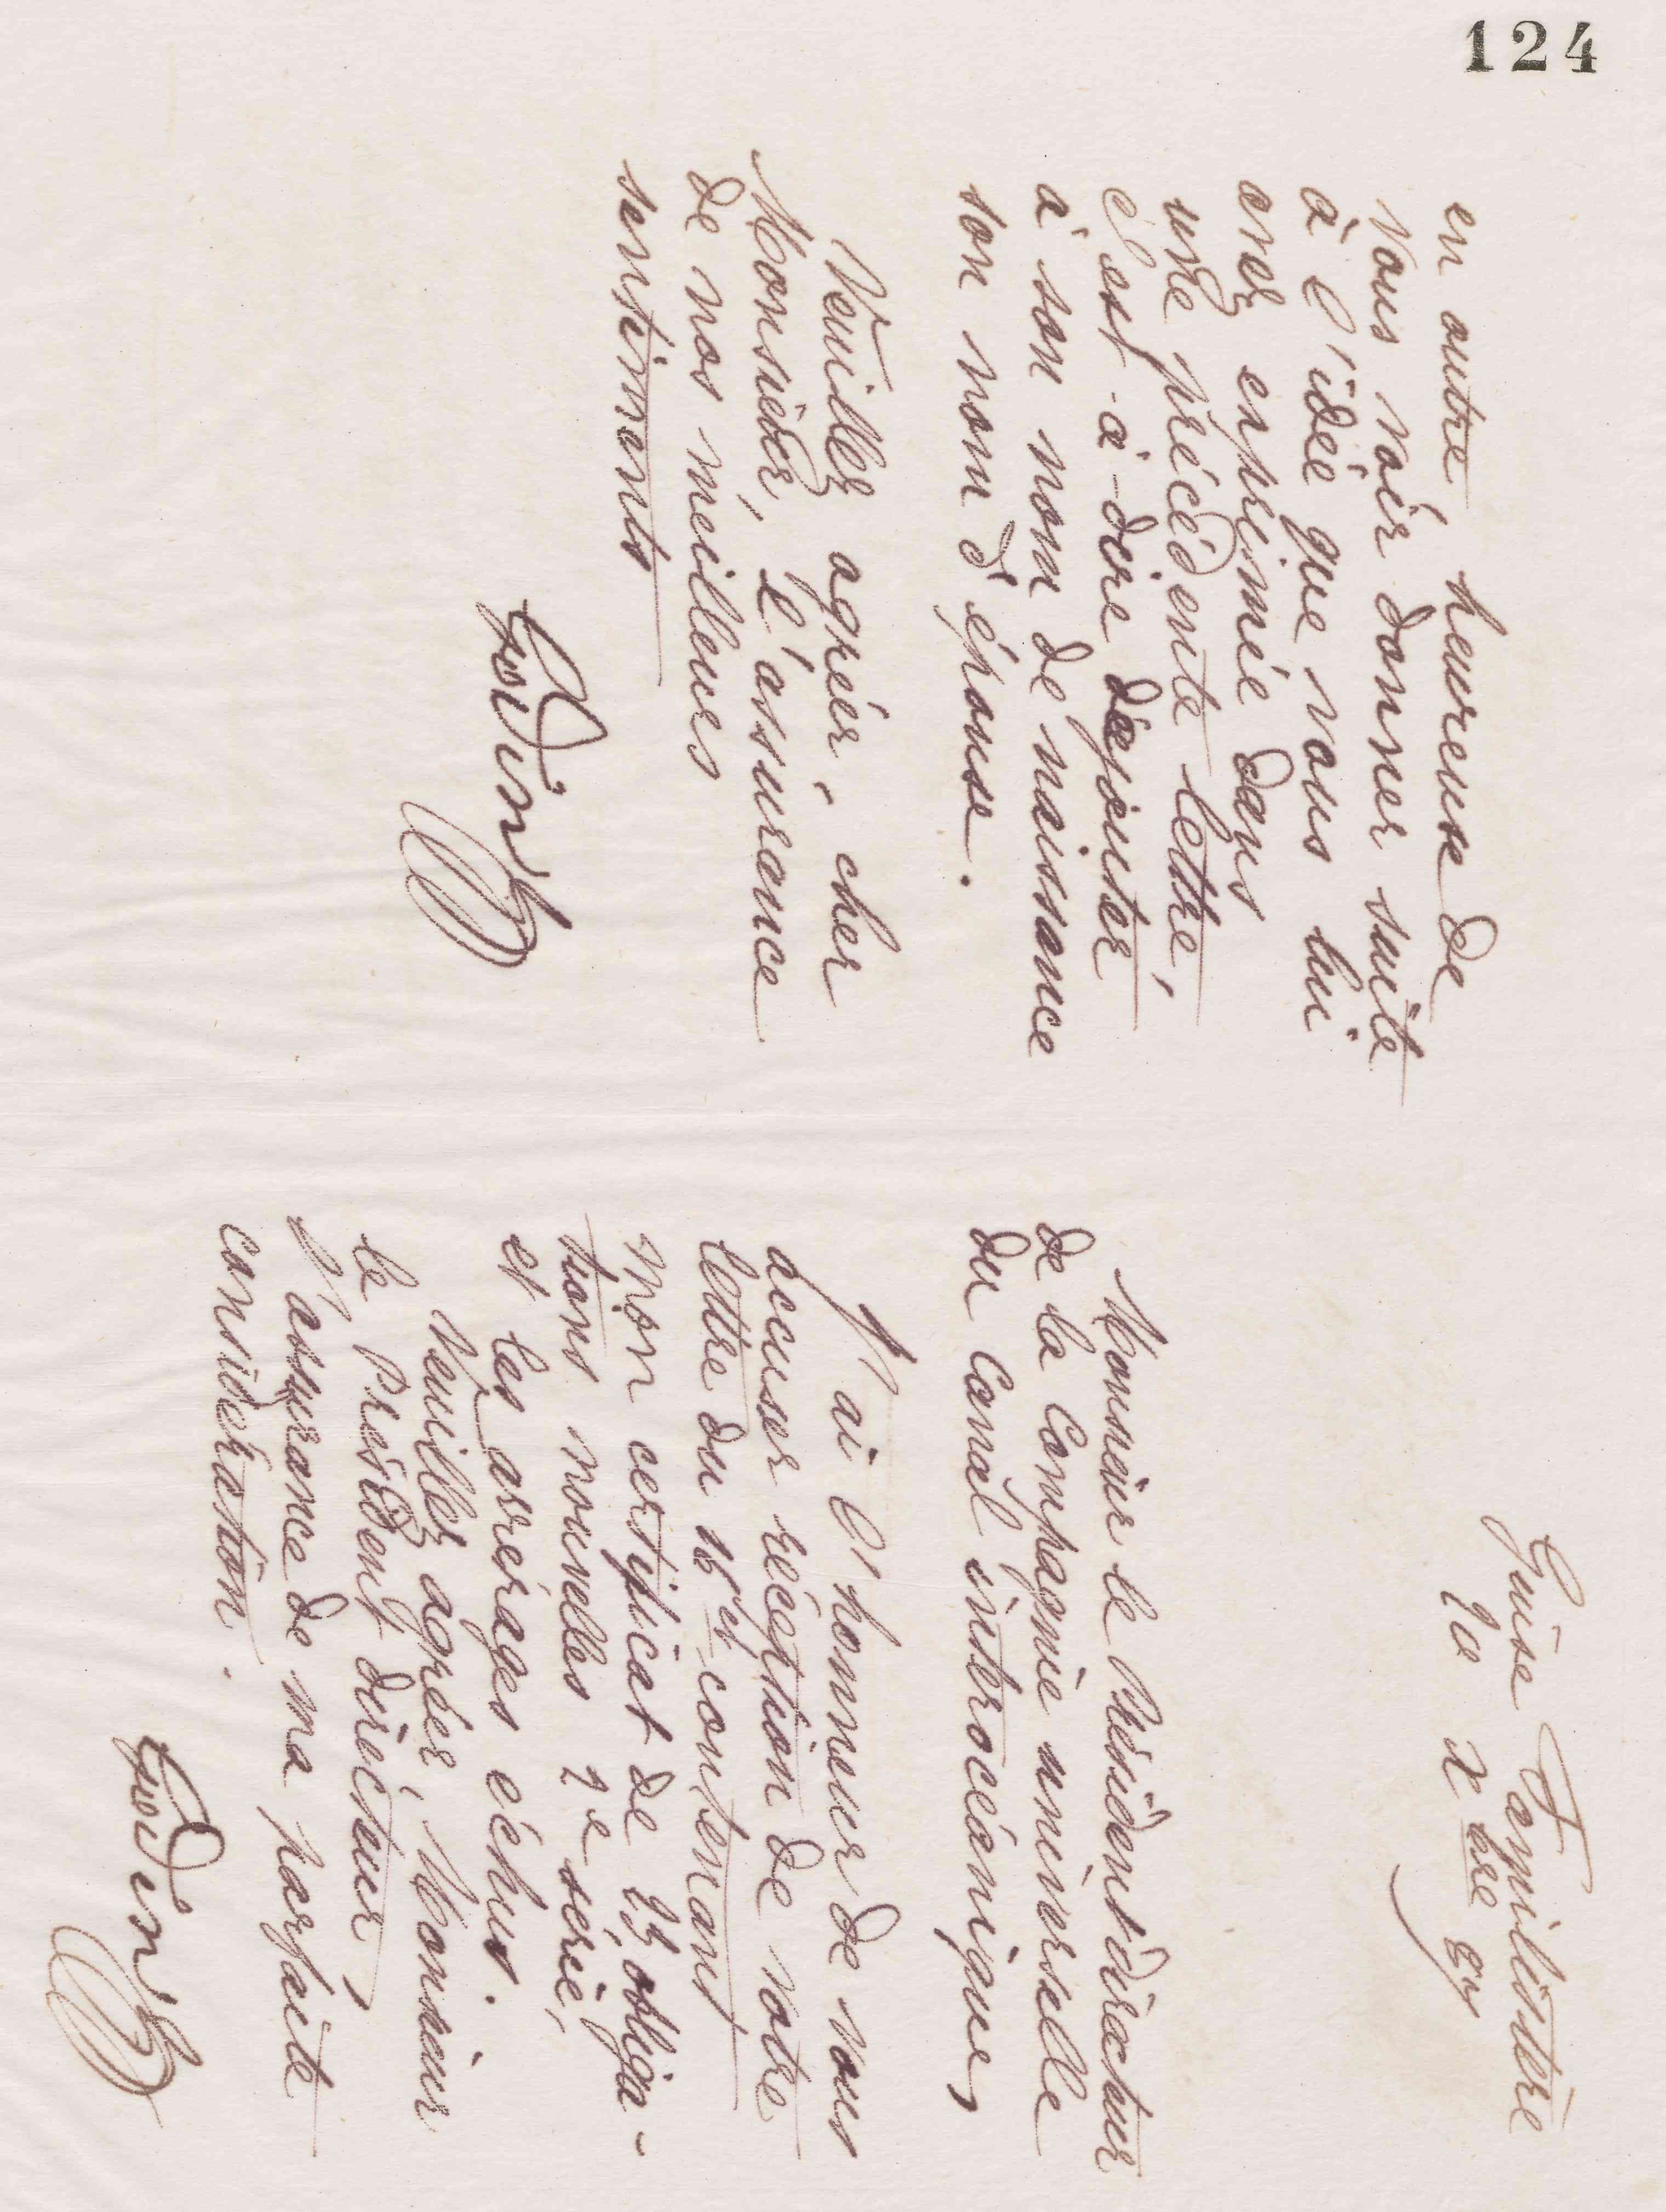 124
en outre heureuse de
vous voir donner suite
à l'idée que vous lui
avez exprimée dans
une précédente lettre,
c'est-à-dire d'ajouter
à son nom de naissance
son nom d'épouse.
Veuillez agréer, cher
Monsieur, l'assurance
de nos meilleurs
sentiments
Godin
Guise Familistère
xbre 87
Monsieur le Président directeur
de la Compagnie universelle
du Canal interocéanique,
J'ai l'honneur de vous
accuser réception de votre
lettre du ct contenant
mon certificat de obliga-
tions nouvelles 2e série,
et les arrérages échus.
Veuillez agréer, Monsieur
le Président directeur,
l'assurance de ma parfaite
considération.
Godin